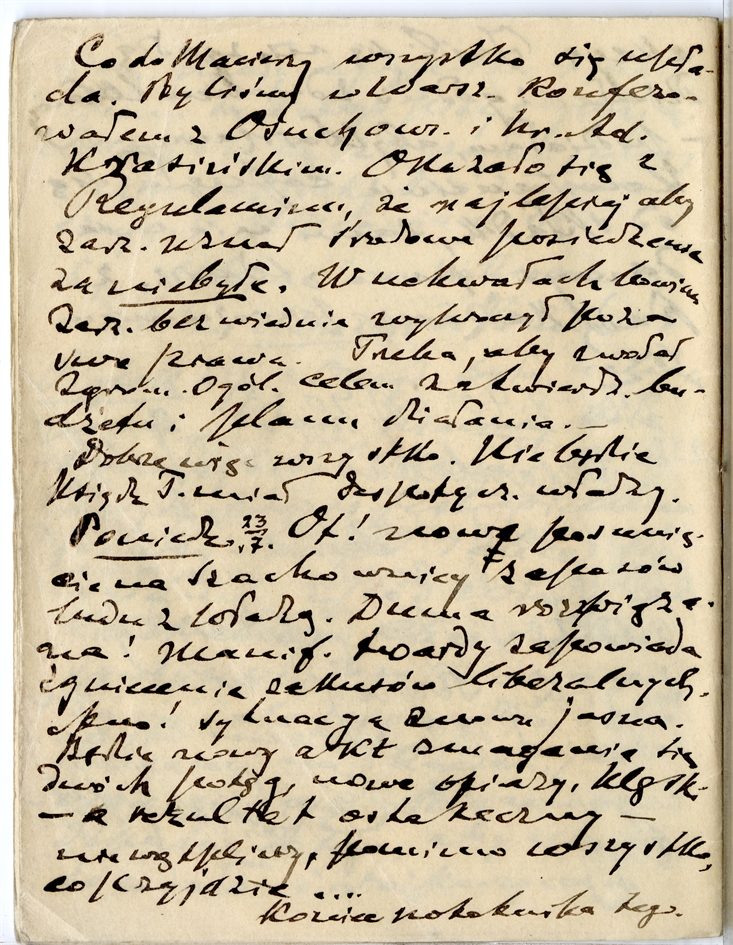 Co do Macierzy wszystko się ukła-
da. Byliśmy w Warsz. Konfero-
wałem z Osuchows. i hr. Ad.
Krasińskim. Okazało się z
Regulaminu, że najlepiej aby
zarz. uznał środowe posiedzenie
za niebyłe. W uchwałach bowiem
zarz. bezwiednie wykroczył poza
swe prawa. Trzeba, aby zwołał
zgrom. ogól. celem zatwierdz. bu-
dżetu i planu działania. —
Dobre więc wszystko. Nie będzie
Ksiądz T. miał despotycz. władzy.
Poniedz. 23/7. Ot! nowe posunię-
cie na szachownicy zapasów
ludu z władzą. Duma rozwiąza-
na! Manif. twardy zapowiada
zgniecenie zakusów liberalnych.
sytuacya znowu jasna.
Będzie nowy akt zmagania się
dwóch potęg, nowe ofiary, klęski
— a rezultat ostateczny —
niewątpliwy, pomimo wszystko,
co przyjdzie ...
Koniec notatnika tego.